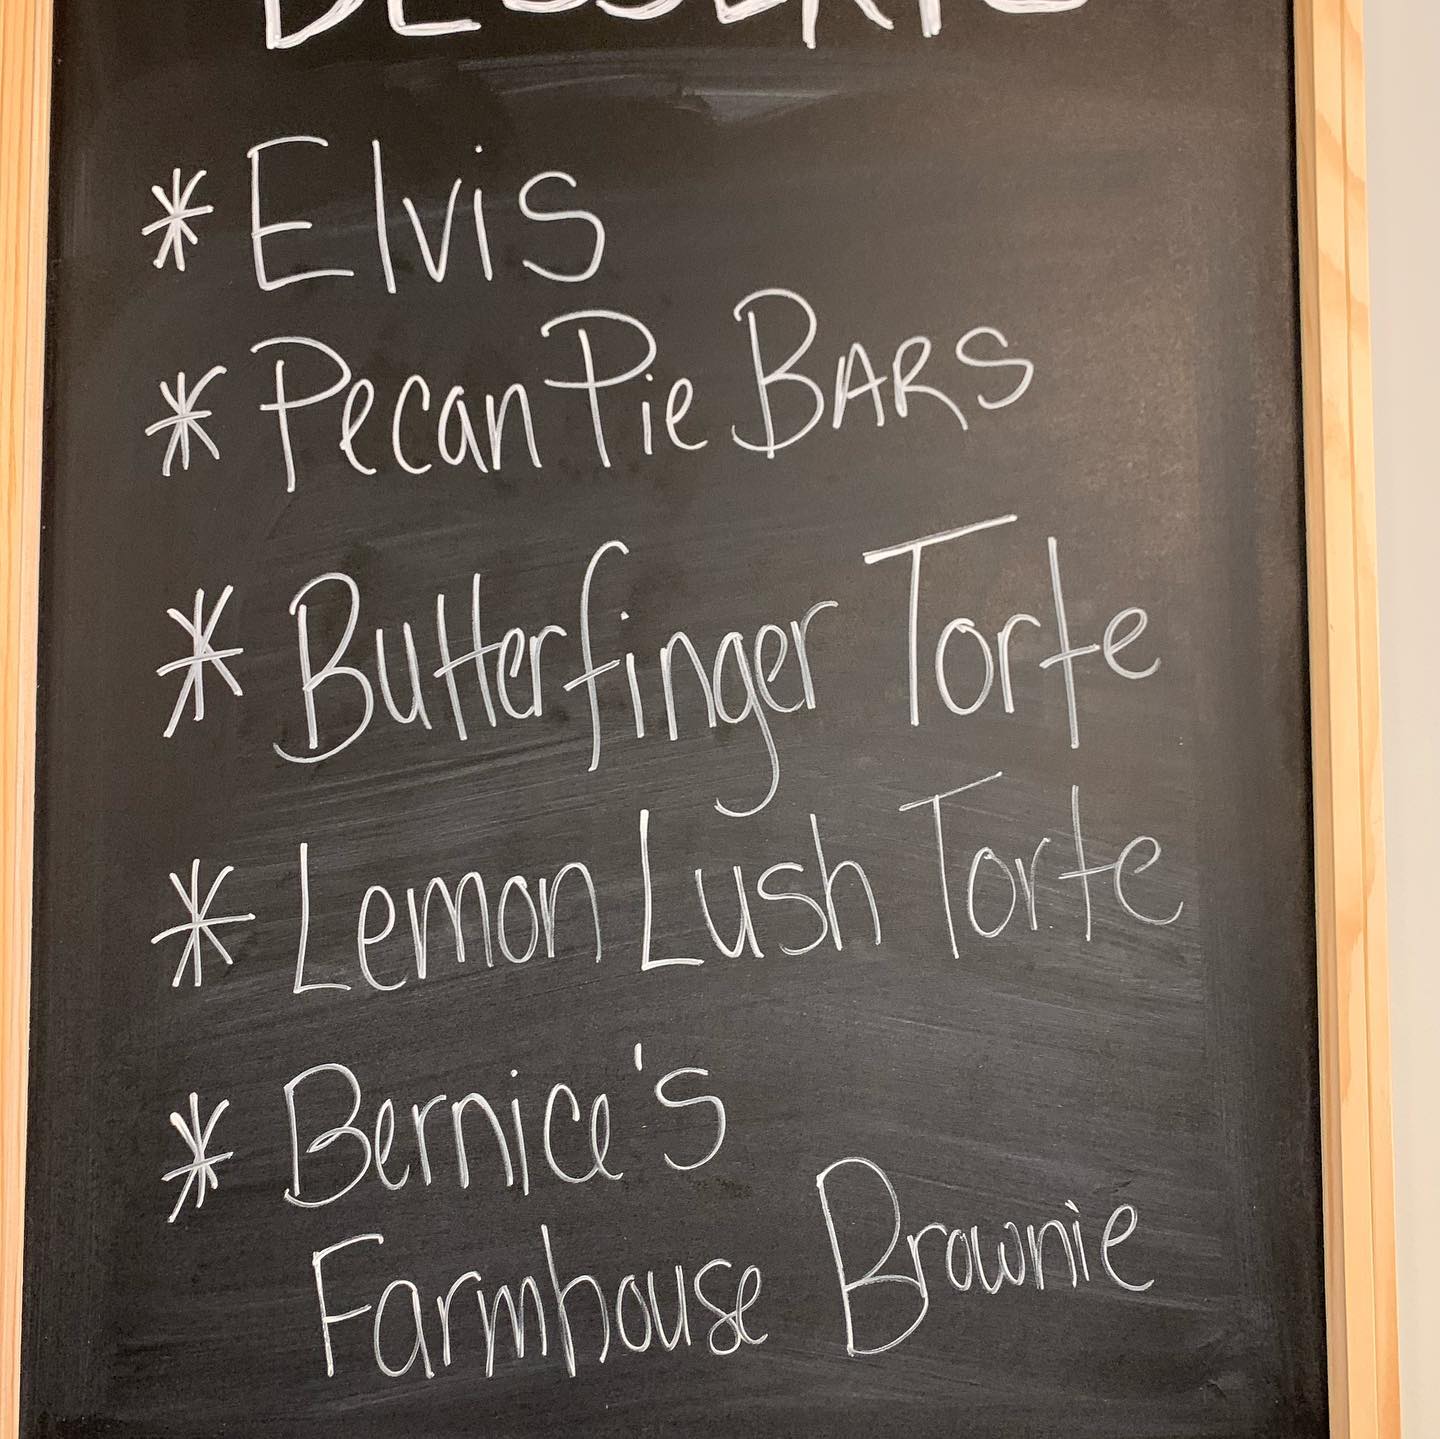 DESSERTS
* Elvis
* Pecan Pie BARS
* Butterfinger Torte
* Lemon Lush Torte
* Bernice's
Farmhouse Brownie